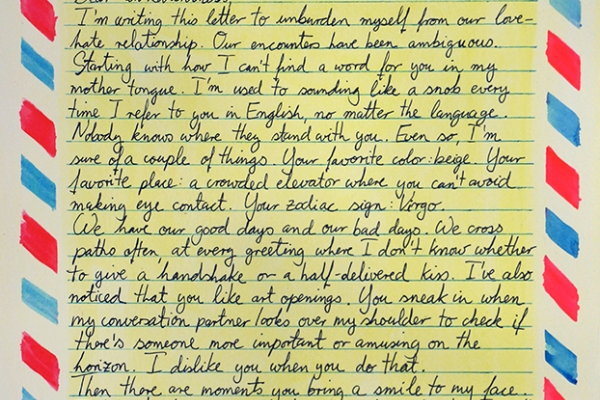 I'm writing this letter to unburden myself from our love-
hate relationship. Our encounters have been ambiguous.
Starting with how I can't find a word for you in my
mother tongue. I'm used to sounding like a snob every
time I refer to you in English, no matter the language.
Nobody knows where they stand with you. Even so, I'm
sure of a couple of things. Your favorite color: beige. Your
favorite place: a crowded elevator where you can't avoid
making eye contact. Your zodiac sign: Virgo.
We have our good days and our bad days. We cross
paths often, at every greeting where I don't know whether
to give a handshake or a half-delivered kiss. I've also
noticed that you like art openings. You sneak in when
my conversation partner looks over my shoulder to check if
there's someone more important or amusing on the
horizon. I dislike you when you do that.
Then there are moments you bring a smile to my face.